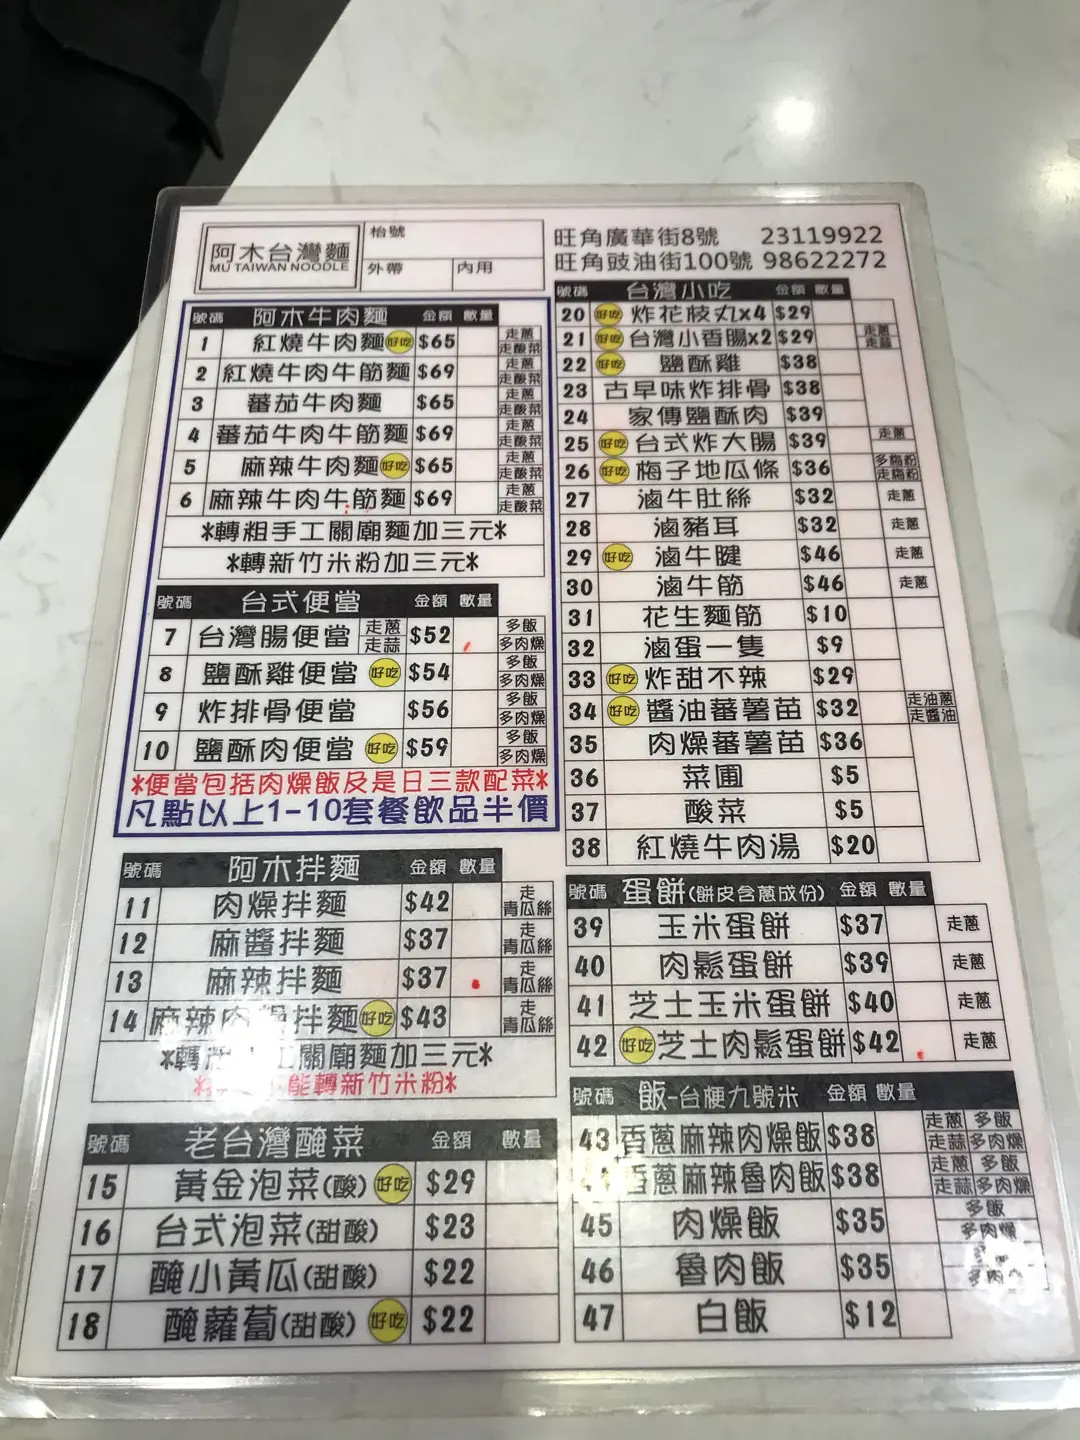 阿木台灣麵
MU TAIWAN NOODLE
枱號
外帶 內用
旺角廣華街8號 23119922
旺角豉油街100號 98622272
號碼 阿木牛肉麵 金額 數量
1 紅燒牛肉麵 好吃 $65 走蔥 走酸菜
2 紅燒牛肉牛筋麵 $69 走蔥 走酸菜
3 蕃茄牛肉麵 $65 走蔥 走酸菜
4 蕃茄牛肉牛筋麵 $69 走蔥 走酸菜
5 麻辣牛肉麵 好吃 $65 走蔥 走酸菜
6 麻辣牛肉牛筋麵 $69 走蔥 走酸菜
*轉粗手工關廟麵加三元*
*轉新竹米粉加三元*
號碼 台式便當 金額 數量
7 台灣腸便當 走蔥 走蒜 $52 多飯 多肉燥
8 鹽酥雞便當 好吃 $54 多飯 多肉燥
9 炸排骨便當 $56 多飯 多肉燥
10 鹽酥肉便當 好吃 $59 多飯 多肉燥
*便當包括肉燥飯及是日三款配菜*
凡點以上1-10套餐飲品半價
號碼 阿木拌麵 金額 數量
11 肉燥拌麵 $42 走青瓜絲
12 麻醬拌麵 $37 走青瓜絲
13 麻辣拌麵 $37 走青瓜絲
14 麻辣肉燥拌麵 好吃 $43 走青瓜絲
*轉粗手工關廟麵加三元*
能轉新竹米粉*
號碼 老台灣醃菜 金額 數量
15 黃金泡菜(酸) 好吃 $29
16 台式泡菜(甜酸) $23
17 醃小黃瓜(甜酸) $22
18 醃蘿蔔(甜酸) 好吃 $22
號碼 台灣小吃 金額 數量
20 好吃 炸花枝丸x4 $29
21 好吃 台灣小香腸x2 $29 走蔥 走蒜
22 好吃 鹽酥雞 $38
23 古早味炸排骨 $38
24 家傳鹽酥肉 $39
25 好吃 台式炸大腸 $39 走蔥
26 好吃 梅子地瓜條 $36 多梅粉 走梅粉
27 滷牛肚絲 $32 走蔥
28 滷豬耳 $32 走蔥
29 好吃 滷牛腱 $46 走蔥
30 滷牛筋 $46 走蔥
31 花生麵筋 $10
32 滷蛋一隻 $9
33 好吃 炸甜不辣 $29
34 好吃 醬油蕃薯苗 $32 走油蔥 走醬油
35 肉燥蕃薯苗 $36
36 菜圃 $5
37 酸菜 $5
38 紅燒牛肉湯 $20
號碼 蛋餅(餅皮含蔥成份) 金額 數量
39 玉米蛋餅 $37 走蔥
40 肉鬆蛋餅 $39 走蔥
41 芝士玉米蛋餅 $40 走蔥
42 好吃 芝士肉鬆蛋餅 $42 走蔥
號碼 飯-台梗九號米 金額 數量
43 香蔥麻辣肉燥飯 $38 走蔥 多飯 走蒜 多肉燥
香蔥麻辣魯肉飯 $38 走蔥 多飯 走蒜 多肉燥
45 肉燥飯 $35 多飯 多肉燥
46 魯肉飯 $35 多肉
47 白飯 $12